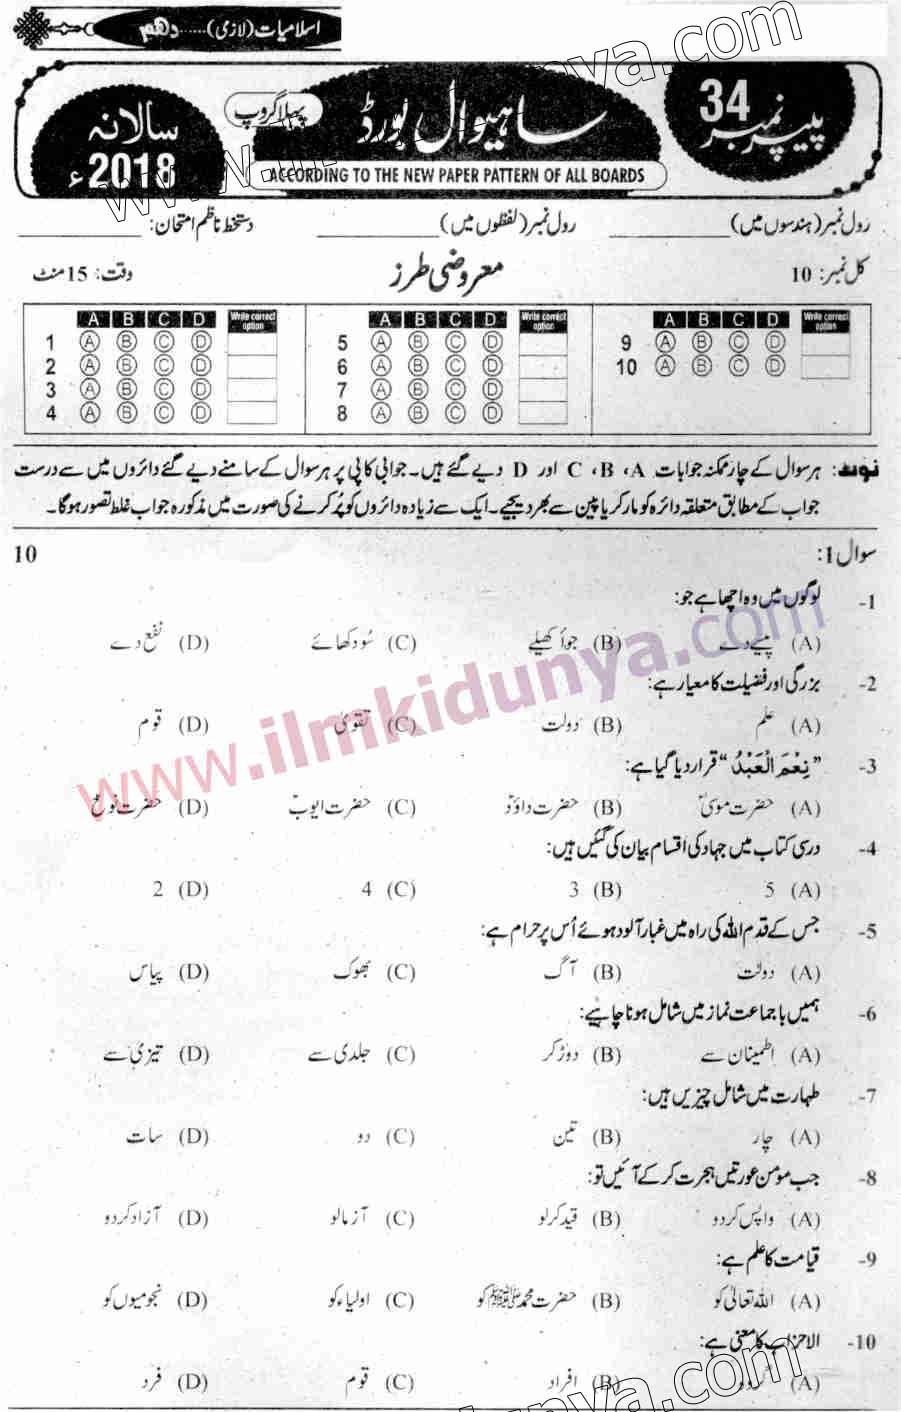 اسلامیات (لازمی)......دھم
پیپر نمبر 34
ساہیوال بورڈ
پہلا گروپ
سالانہ 2018ء
ACCORDING TO THE NEW PAPER PATTERN OF ALL BOARDS
رول نمبر (ہندسوں میں) ____________ رول نمبر (لفظوں میں) ____________ دستخط ناظم امتحان: ____________
کل نمبر: 10 معروضی طرز وقت: 15 منٹ
A B C D Write correct option A B C D Write correct option A B C D Write correct option
1 A B C D 5 A B C D 9 A B C D
2 A B C D 6 A B C D 10 A B C D
3 A B C D 7 A B C D
4 A B C D 8 A B C D
نوٹ: ہر سوال کے چار ممکنہ جوابات A، B، C اور D دیے گئے ہیں۔ جوابی کاپی پر ہر سوال کے سامنے دیے گئے دائروں میں سے درست
جواب کے مطابق متعلقہ دائرہ کو مارکر یا پین سے بھر دیجیے۔ ایک سے زیادہ دائروں کو پُر کرنے کی صورت میں مذکورہ جواب غلط تصور ہوگا۔
سوال 1: 10
1- لوگوں میں وہ اچھا ہے جو:
(A) پیسے دے (B) جوأ کھیلے (C) سُود کھائے (D) نفع دے
2- بزرگی اور فضیلت کا معیار ہے:
(A) علم (B) دولت (C) تقویٰ (D) قوم
3- ”نِعْمَ الْعَبْدُ“ قرار دیا گیا ہے:
(A) حضرت موسیٰؑ (B) حضرت داؤدؑ (C) حضرت ایوبؑ (D) حضرت نوحؑ
4- درسی کتاب میں جہاد کی اقسام بیان کی گئیں ہیں:
(A) 5 (B) 3 (C) 4 (D) 2
5- جس کے قدم اللہ کی راہ میں غبار آلود ہوئے اُس پر حرام ہے:
(A) دولت (B) آگ (C) بھوک (D) پیاس
6- ہمیں باجماعت نماز میں شامل ہونا چاہیے:
(A) اطمینان سے (B) دوڑ کر (C) جلدی سے (D) تیزی سے
7- طہارت میں شامل چیزیں ہیں:
(A) چار (B) تین (C) دو (D) سات
8- جب مومن عورتیں ہجرت کر کے آئیں تو:
(A) واپس کر دو (B) قید کر لو (C) آزما لو (D) آزاد کر دو
9- قیامت کا علم ہے:
(A) اللہ تعالیٰ کو (B) حضرت محمد ﷺ کو (C) اولیاء کو (D) نجومیوں کو
10- الاحزاب کا معنی ہے:
(A) (B) افراد (C) قوم (D) فرد
www.ilmkidunya.com